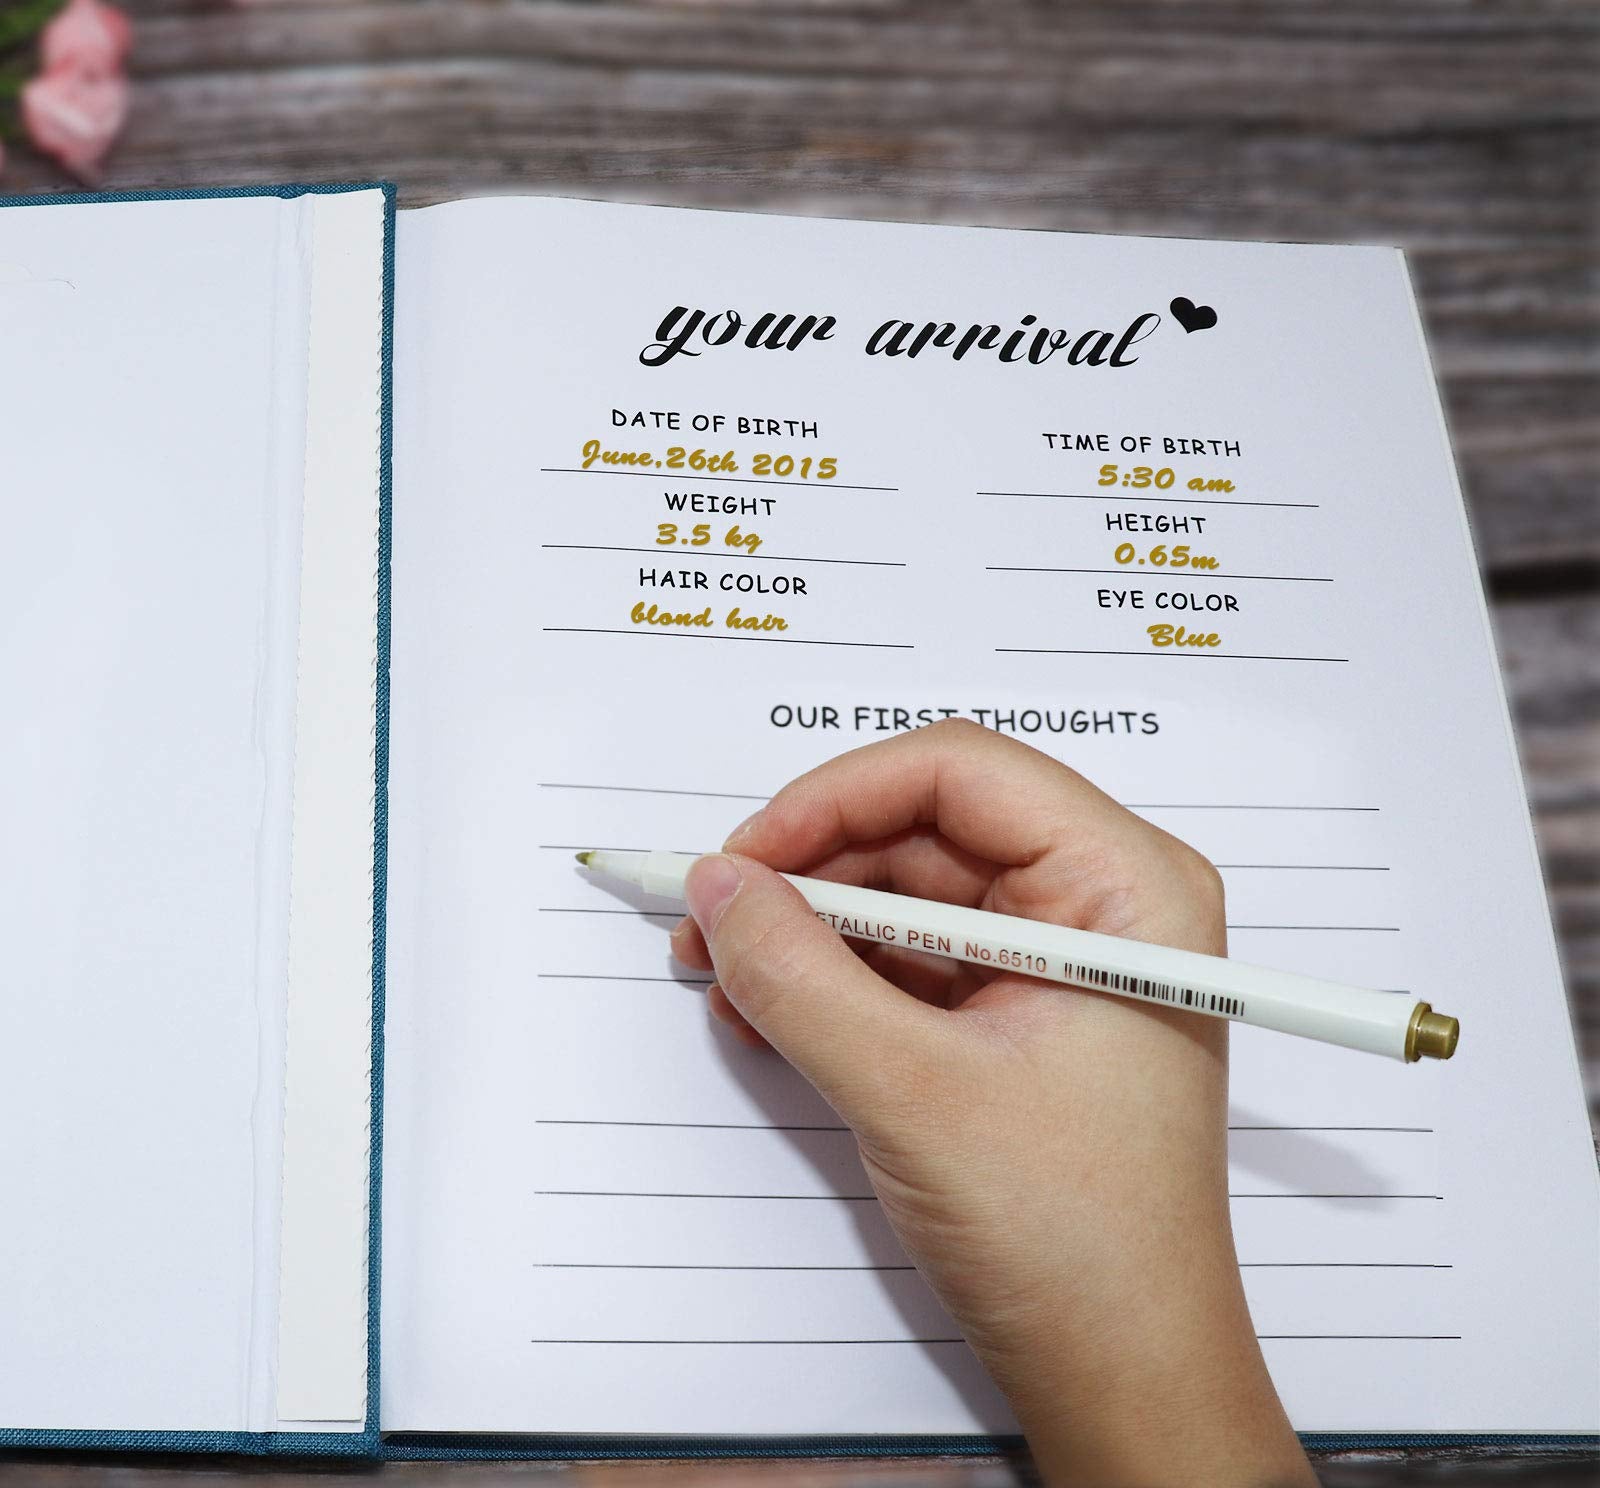 your arrival
DATE OF BIRTH
June.26th 2015
TIME OF BIRTH
5:30 am
WEIGHT
3.5 kg
HEIGHT
0.65m
HAIR COLOR
blond hair
EYE COLOR
Blue
OUR FIRST THOUGHTS
ETALLIC PEN No.6510